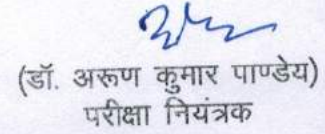 (डॉ. अरूण कुमार पाण्डेय)
परीक्षा नियंत्रक